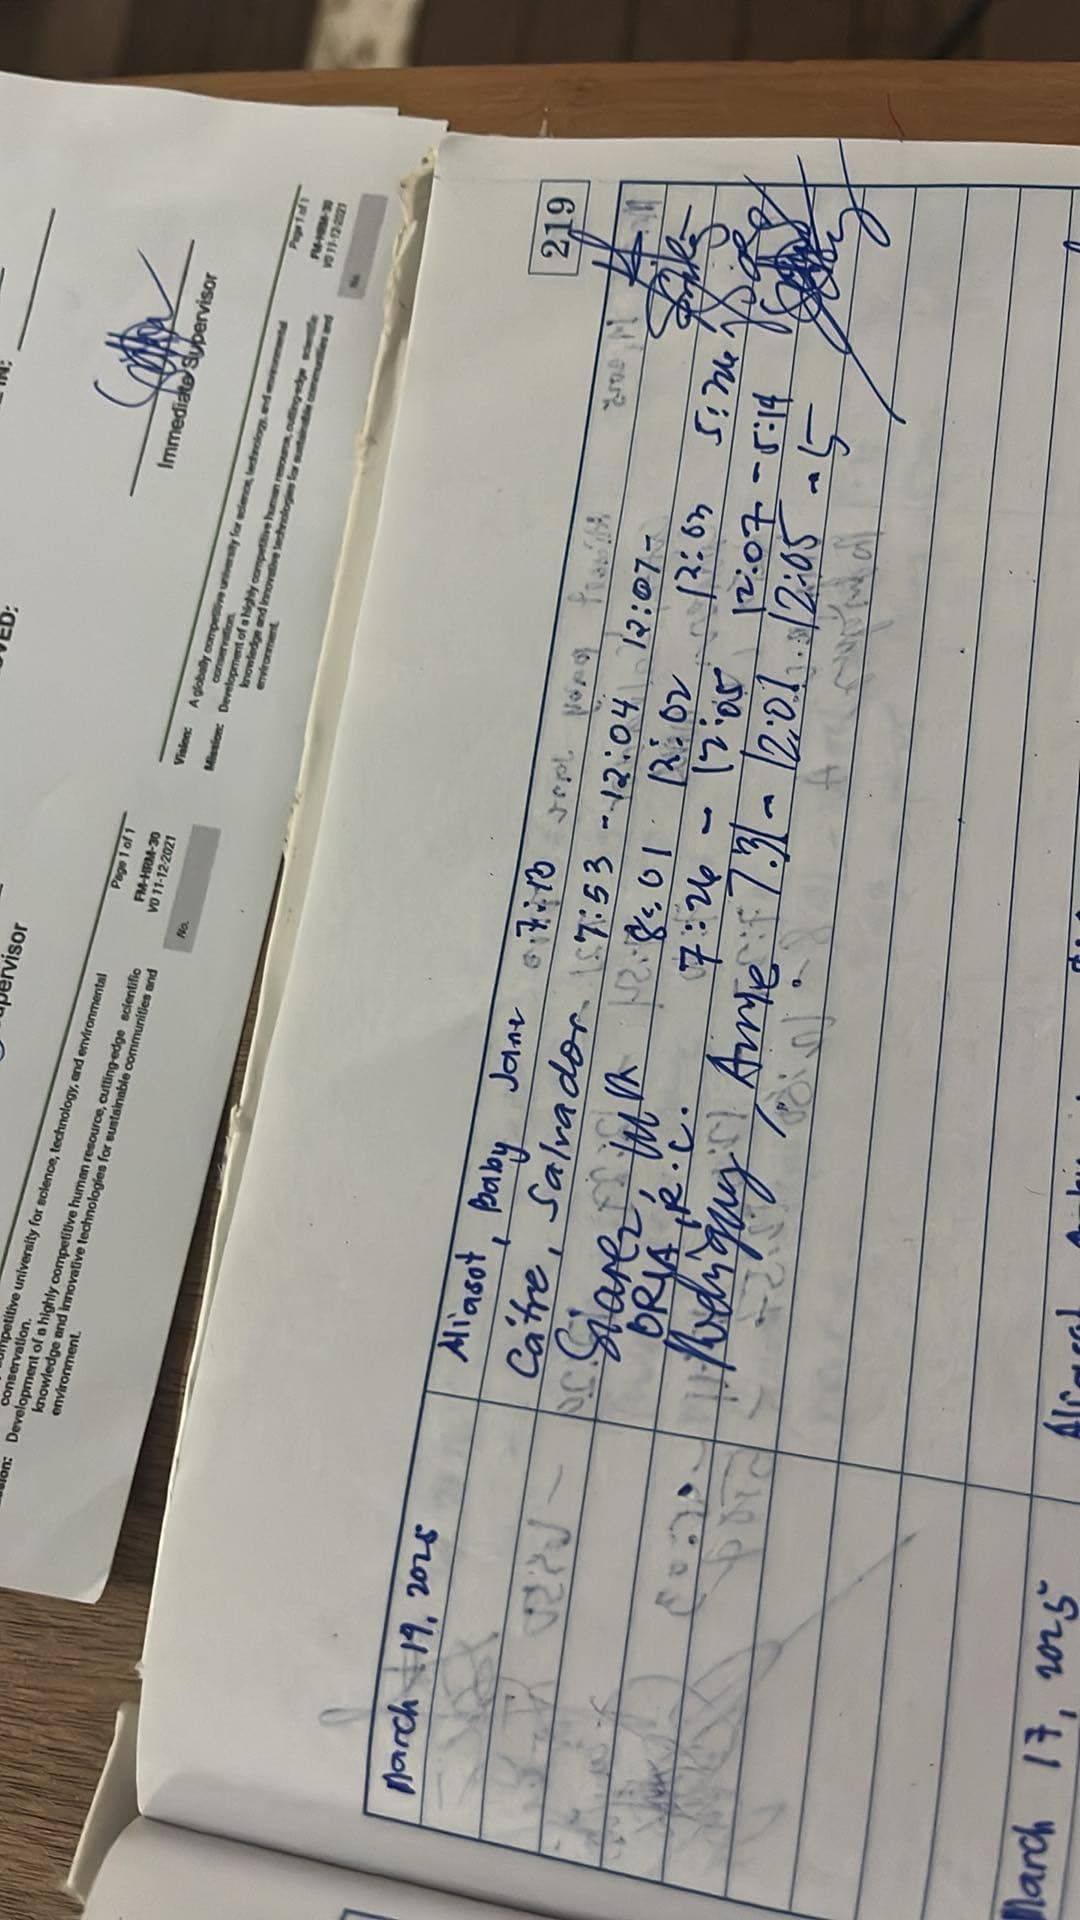 219
March 19, 2025
Aliasot, Baby Jane 7:13
Catre, Salvador 7:53 - 12:04 12:07-
8:01 12:02 12:03 5:26
ORIA, R.C. 7:26 - 12:05 12:07 - 5:14
Annie 7:31 - 12:01 12:05 - 5
March 17, 2025
Immediate Supervisor
Page 1 of 1
FM-HRM-30
V0 11-12-2021
No.
Vision: A globally competitive university for science, technology, and environmental
conservation.
Mission: Development of a highly competitive human resource, cutting-edge scientific
knowledge and innovative technologies for sustainable communities and
environment.
Page 1 of 1
FM-HRM-30
V0 11-12-2021
No.
competitive university for science, technology, and environmental
conservation.
Development of a highly competitive human resource, cutting-edge scientific
knowledge and innovative technologies for sustainable communities and
environment.